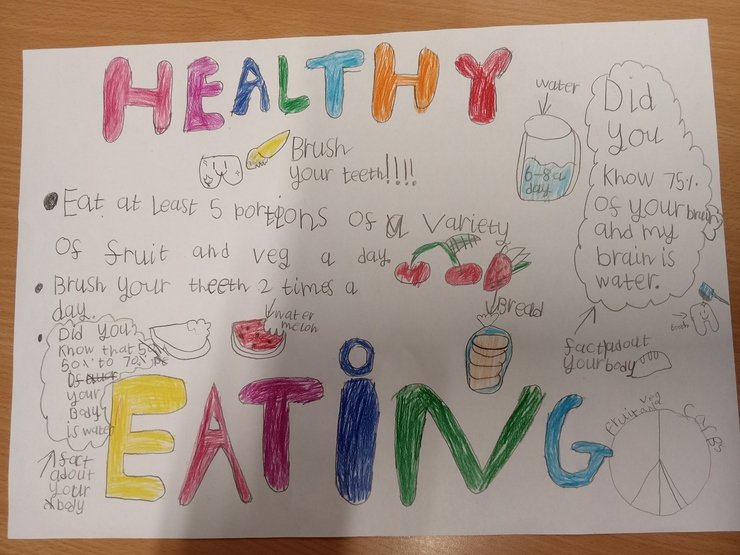 HEALTHY
Brush
your teeth!!!!
Eat at least 5 portions of a variety
of fruit and veg a day.
Brush your theeth 2 times a
day.
water
6-8 a
day
Did
you
Know 75%
of your brain
and my
brain is
water.
teeth
fact adout
your body
water
meloh
Bread
Did you?
Know that
50% to 70%
Of
your
Body
is water
fact
adout
your
body
EATiNG
fruit and veg
carbs